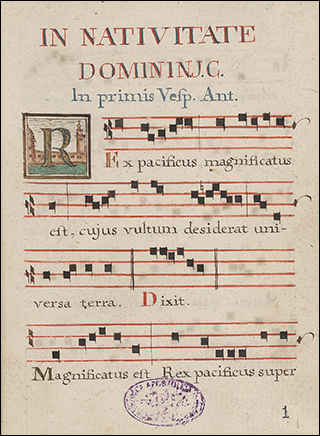 IN NATIVITATE
DOMINI N.J.C.
In primis Vesp. Ant.
REx pacificus magnificatus
est, cujus vultum desiderat uni-
versa terra. Dixit.
Magnificatus est Rex pacificus super
1